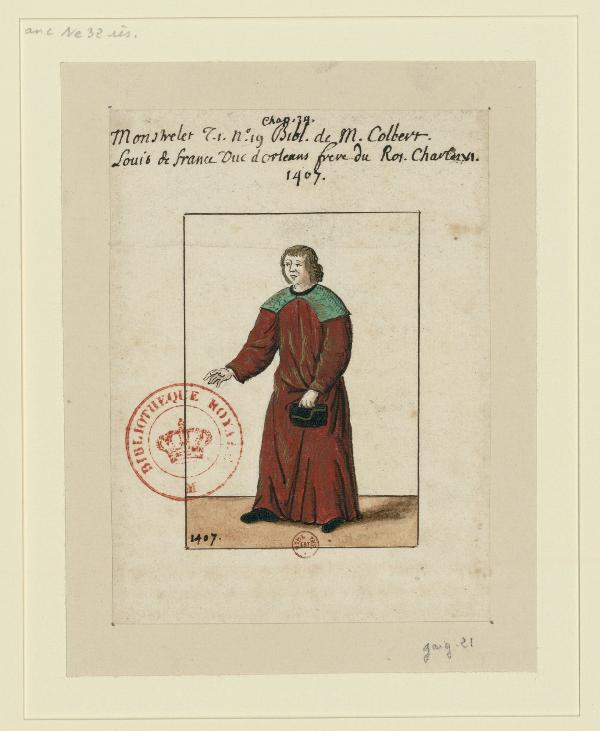 anc Ne 32 rés.
Chap. 39.
Monstrelet T.1. N.º 19 Bibl. de M. Colbert.
Louis de france Duc dorleans frere du Roi. Charles VI.
1407.
BIBLIOTHEQUE ROYALE
1407.
gaig. 21